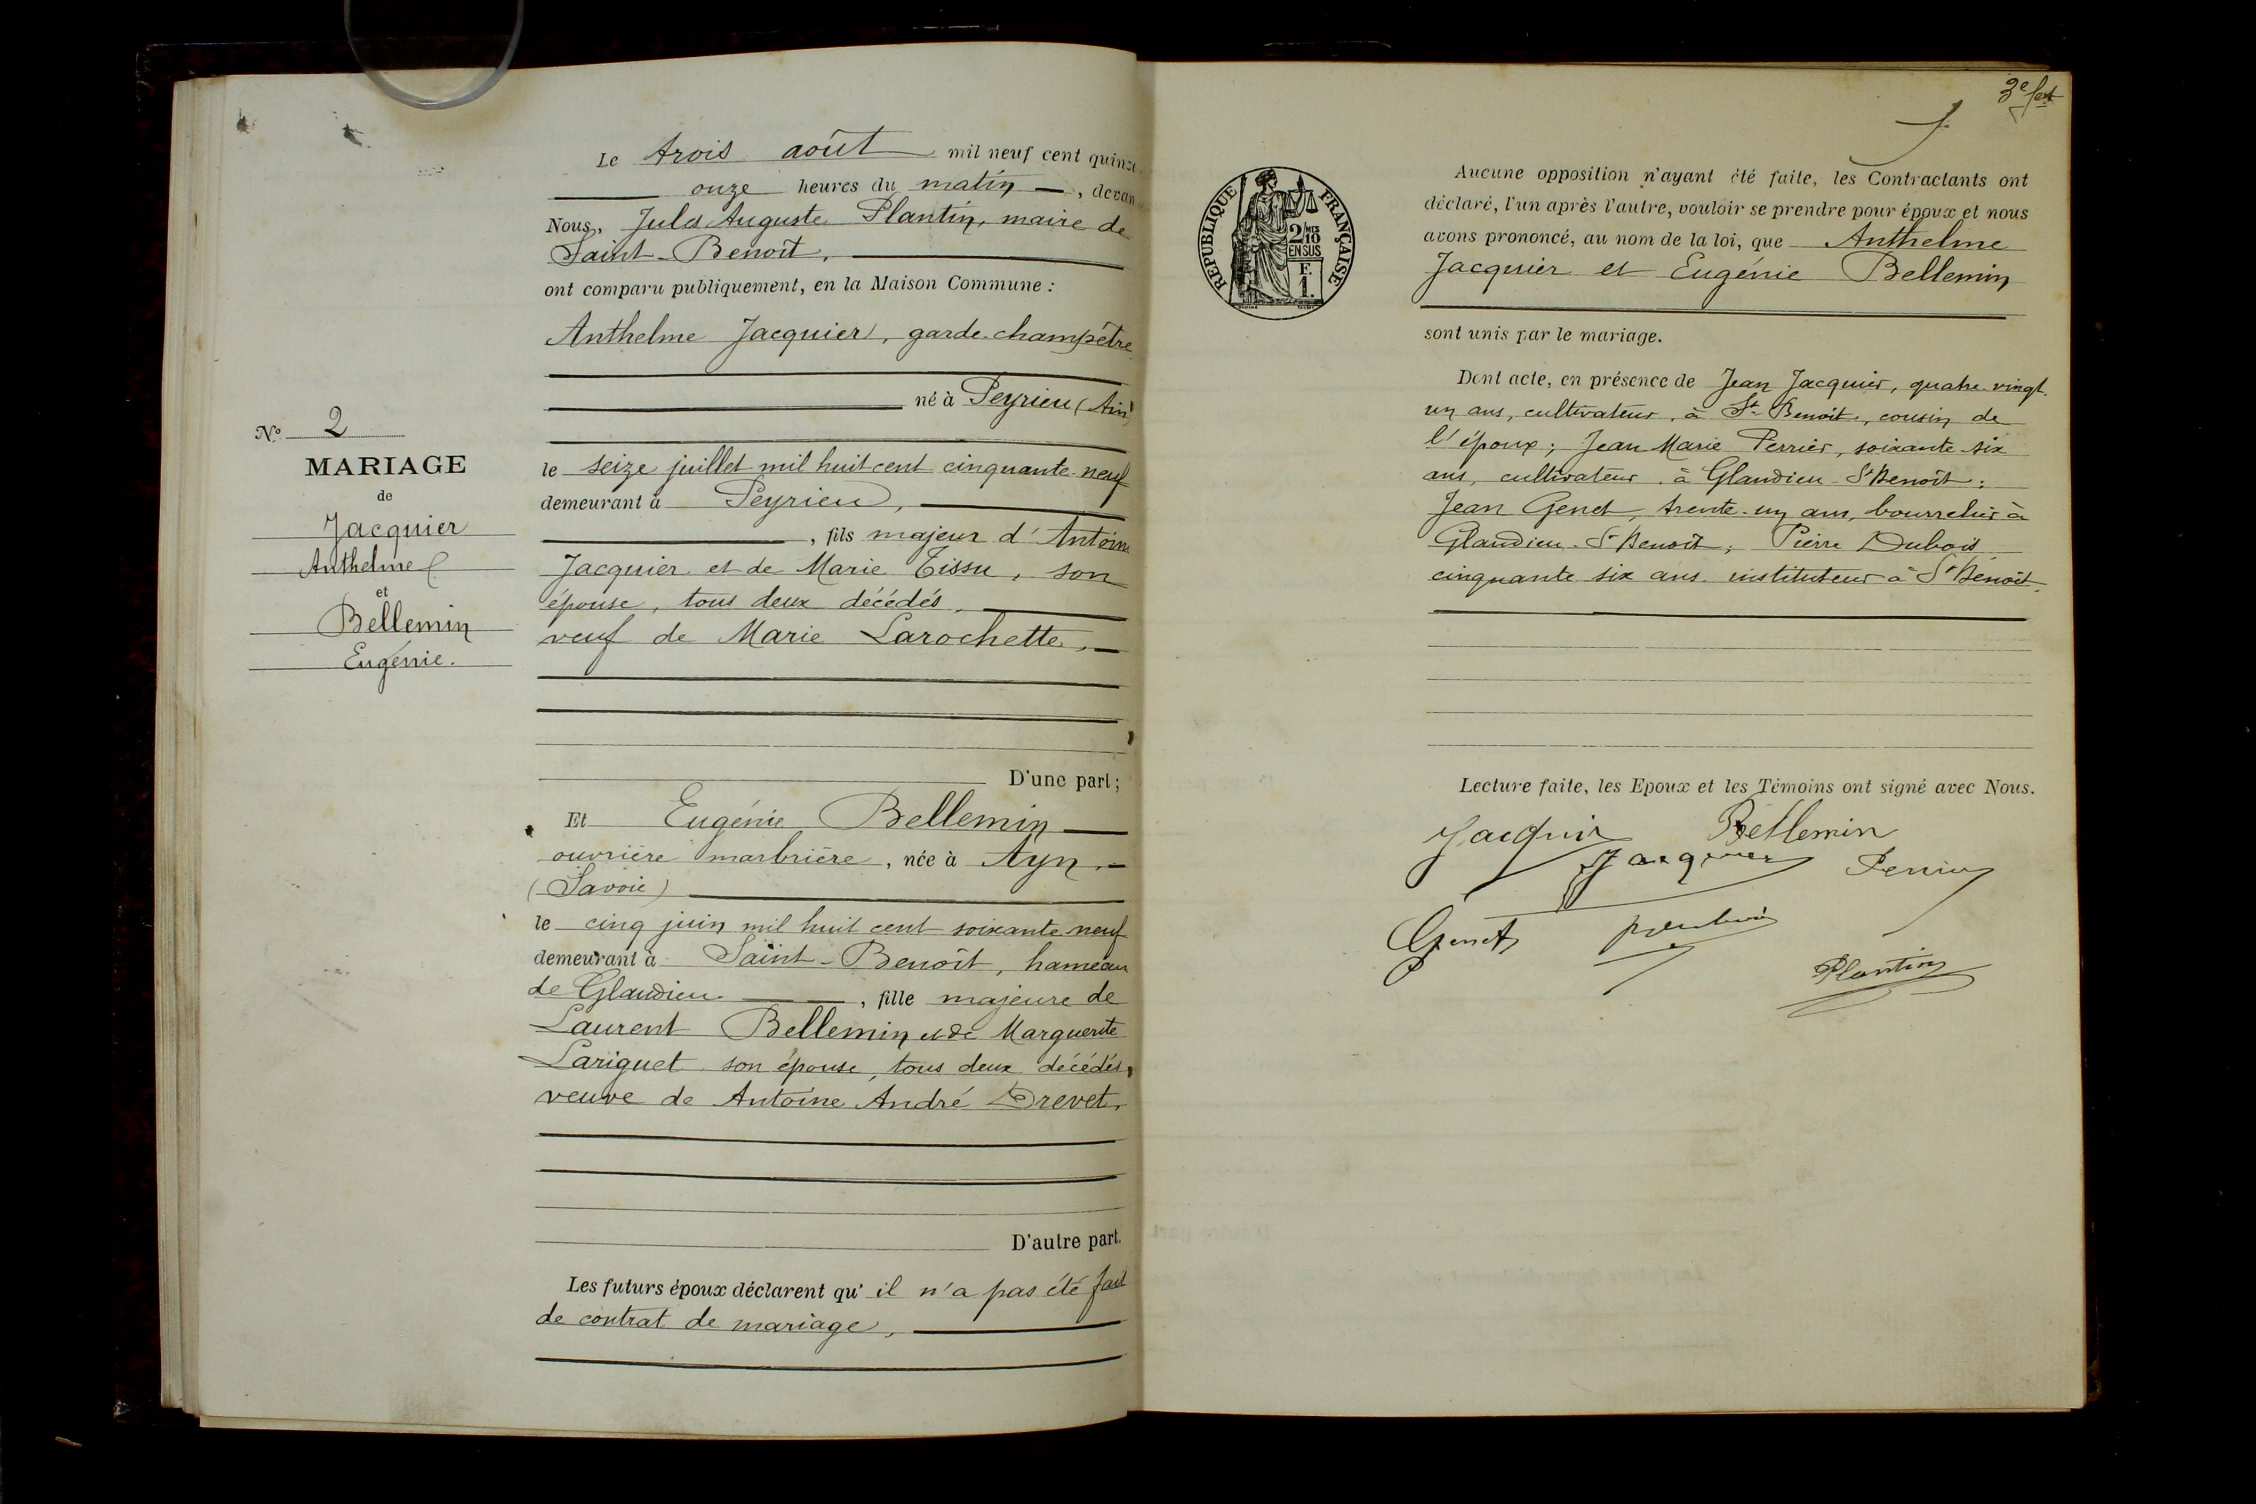 Le trois août mil neuf cent quinze
onze heures du matin, devant
Nous, Jules Auguste Plantin, maire de
Saint-Benoît,
ont comparu publiquement, en la Maison Commune :
Anthelme Jacquier, garde-champêtre
né à Peyrieu (Ain)
le seize juillet mil huit cent cinquante-neuf
demeurant à Peyrieu,
, fils majeur d'Antoine
Jacquier et de Marie Tissu, son
épouse, tous deux décédés,
veuf de Marie Larochette,
D'une part ;
Et Eugénie Bellemin
ouvrière marbrière, née à Ayn,
(Savoie)
le cinq juin mil huit cent soixante-neuf
demeurant à Saint-Benoît, hameau
de Glandieu, fille majeure de
Laurent Bellemin et de Marguerite
Lariguet son épouse, tous deux décédés,
veuve de Antoine André Drevet,
D'autre part.
Les futurs époux déclarent qu'il n'a pas été fait
de contrat de mariage,
N° 2
MARIAGE
de
Jacquier
Anthelme
et
Bellemin
Eugénie.
3e
REPUBLIQUE FRANÇAISE
2/10
EN SUS
F.
1.
Aucune opposition n'ayant été faite, les Contractants ont
déclaré, l'un après l'autre, vouloir se prendre pour époux et nous
avons prononcé, au nom de la loi, que Anthelme
Jacquier et Eugénie Bellemin
sont unis par le mariage.
Dont acte, en présence de Jean Jacquier, quatre-vingt-
un ans, cultivateur, à St-Benoit, cousin de
l'époux ; Jean Marie Perrier, soixante-six
ans, cultivateur, à Glandieu-St Benoît ;
Jean Genet, trente-un ans, bourrelier à
Glandieu-St Benoît ; Pierre Dubois
cinquante six ans instituteur à St Benoît.
Lecture faite, les Epoux et les Témoins ont signé avec Nous.
Jacquier Bellemin
Jacquier Perrier
Genet
Plantin